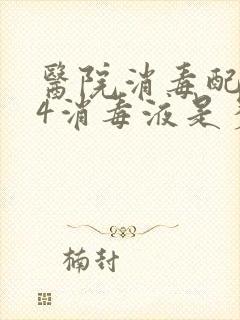 醫院消毒配
4消毒液是
楠封